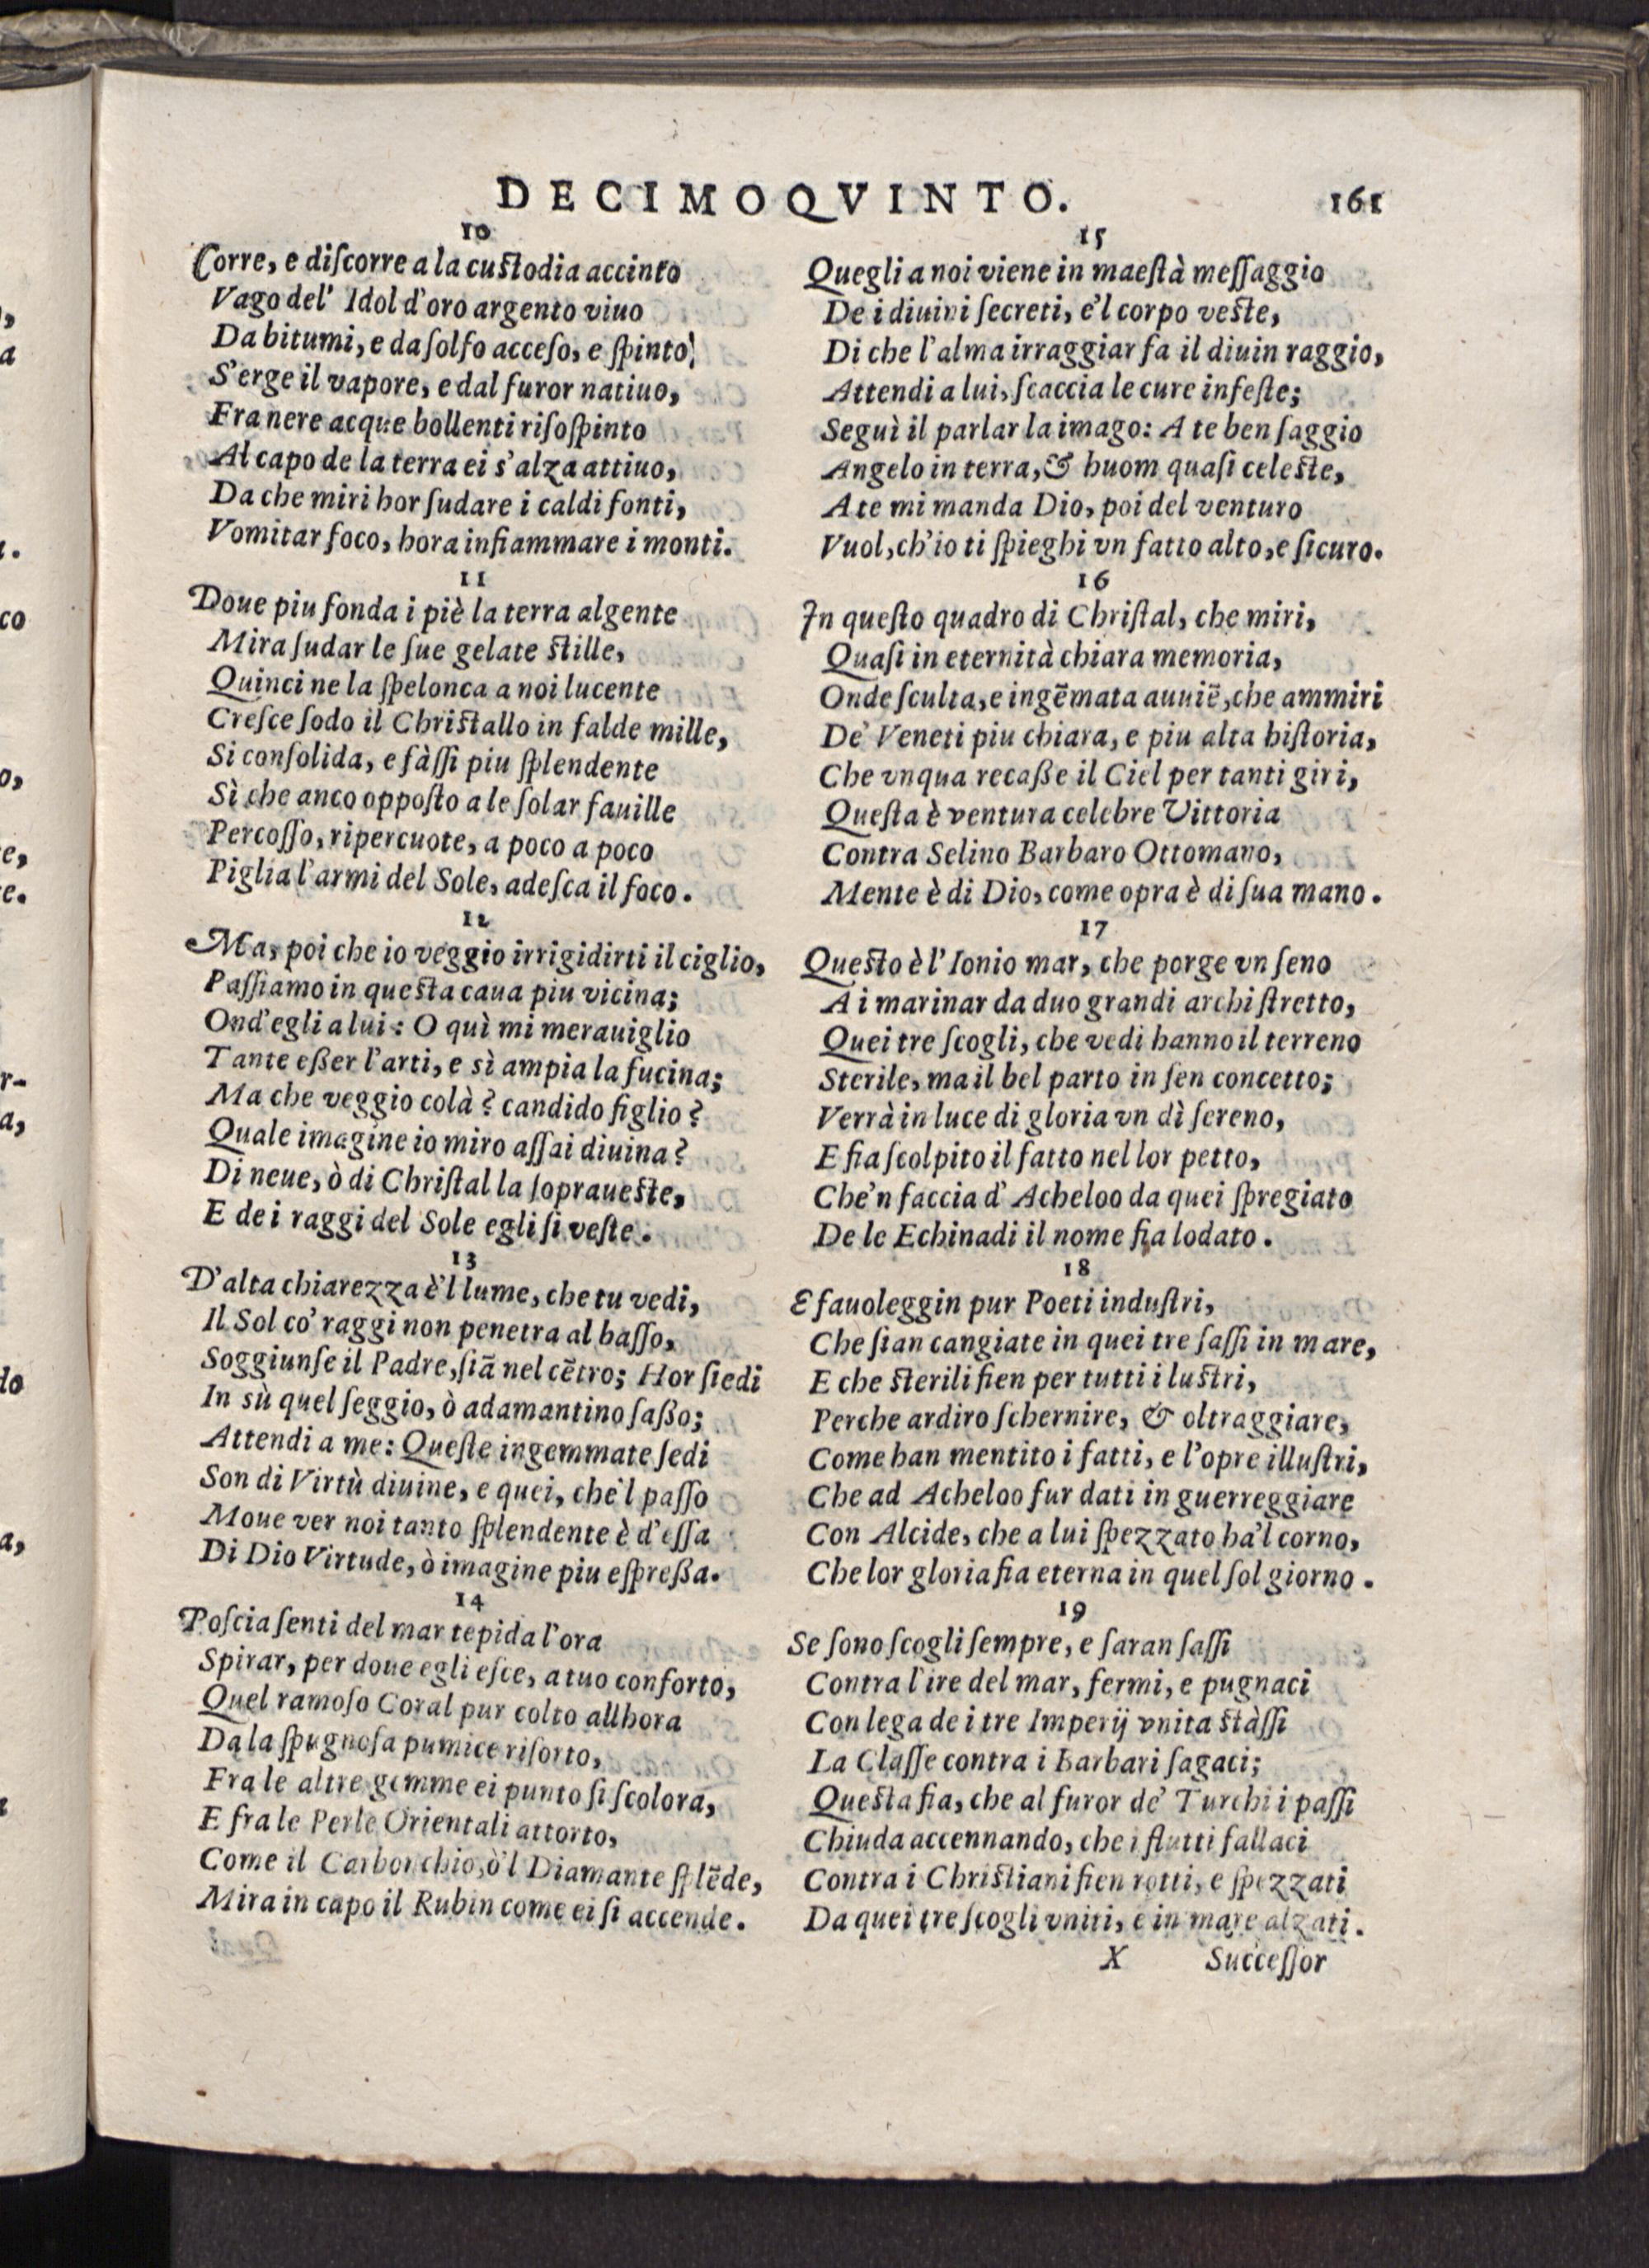 DECIMOQVINTO. 161
10
Corre, e diſcorre a la cuſtodia accinto
Vago del' Idol d'oro argento viuo
Da bitumi, e da ſolfo acceſo, e ſpinto;
S'erge il vapore, e dal furor natiuo,
Fra nere acque bollenti riſoſpinto
Al capo de la terra ei s'alza attiuo,
Da che miri hor ſudare i caldi fonti,
Vomitar foco, hora infiammare i monti.
11
Doue piu fonda i piè la terra algente
Mira ſudar le ſue gelate ſtille,
Quinci ne la ſpelonca a noi lucente
Creſce ſodo il Chriſtallo in falde mille,
Si conſolida, e fàſſi piu ſplendente
Sì che anco oppoſto a le ſolar fauille
Percoſſo, ripercuote, a poco a poco
Piglia l'armi del Sole, adeſca il foco.
12
Ma, poi che io veggio irrigidirti il ciglio,
Paſſiamo in queſta caua piu vicina;
Ond'egli a lui: O quì mi merauiglio
Tante eßer l'arti, e sì ampia la fucina;
Ma che veggio colà? candido figlio?
Quale imagine io miro aſſai diuina?
Di neue, ò di Chriſtal la ſopraueſte,
E de i raggi del Sole egli ſi veſte.
13
D'alta chiarezza è'l lume, che tu vedi,
Il Sol co' raggi non penetra al baſſo,
Soggiunſe il Padre, ſiā nel cētro; Hor ſiedi
In sù quel ſeggio, ò adamantino ſaßo;
Attendi a me: Queſte ingemmate ſedi
Son di Virtù diuine, e quei, che'l paſſo
Moue ver noi tanto ſplendente è d'eſſa
Di Dio Virtude, ò imagine piu eſpreßa.
14
Poſcia ſenti del mar tepida l'ora
Spirar, per doue egli eſce, a tuo conforto,
Quel ramoſo Coral pur colto allhora
Da la ſpugnoſa pumice riſorto,
Fra le altre gemme ei punto ſi ſcolora,
E fra le Perle Orientali attorto,
Come il Carbonchio, ò'l Diamante ſplēde,
Mira in capo il Rubin come ei ſi accende.
15
Quegli a noi viene in maeſtà meſſaggio
De i diuini ſecreti, e'l corpo veſte,
Di che l'alma irraggiar fa il diuin raggio,
Attendi a lui, ſcaccia le cure infeſte;
Seguì il parlar la imago: A te ben ſaggio
Angelo in terra, & huom quaſi celeſte,
A te mi manda Dio, poi del venturo
Vuol, ch'io ti ſpieghi vn fatto alto, e ſicuro.
16
In queſto quadro di Chriſtal, che miri,
Quaſi in eternità chiara memoria,
Onde ſculta, e ingēmata auuiē, che ammiri
De' Veneti piu chiara, e piu alta hiſtoria,
Che vnqua recaße il Ciel per tanti giri,
Queſta è ventura celebre Vittoria
Contra Selino Barbaro Ottomano,
Mente è di Dio, come opra è di ſua mano.
17
Queſto è l'Ionio mar, che porge vn ſeno
A i marinar da duo grandi archi ſtretto,
Quei tre ſcogli, che vedi hanno il terreno
Sterile, ma il bel parto in ſen concetto;
Verrà in luce di gloria vn dì ſereno,
E fia ſcolpito il fatto nel lor petto,
Che'n faccia d'Acheloo da quei ſpregiato
De le Echinadi il nome fia lodato.
18
E fauoleggin pur Poeti induſtri,
Che ſian cangiate in quei tre ſaſſi in mare,
E che ſterili fien per tutti i luſtri,
Perche ardiro ſchernire, & oltraggiare,
Come han mentito i fatti, e l'opre illuſtri,
Che ad Acheloo fur dati in guerreggiare
Con Alcide, che a lui ſpezzato ha'l corno,
Che lor gloria fia eterna in quel ſol giorno.
19
Se ſono ſcogli ſempre, e ſaran ſaſſi
Contra l'ire del mar, fermi, e pugnaci
Con lega de i tre Imperij vnita ſtàſſi
La Claſſe contra i Barbari ſagaci;
Queſta fia, che al furor de' Turchi i paſſi
Chiuda accennando, che i flutti fallaci
Contra i Chriſtiani fien rotti, e ſpezzati
Da quei tre ſcogli vniti, e in mare alzati.
X Succeſſor